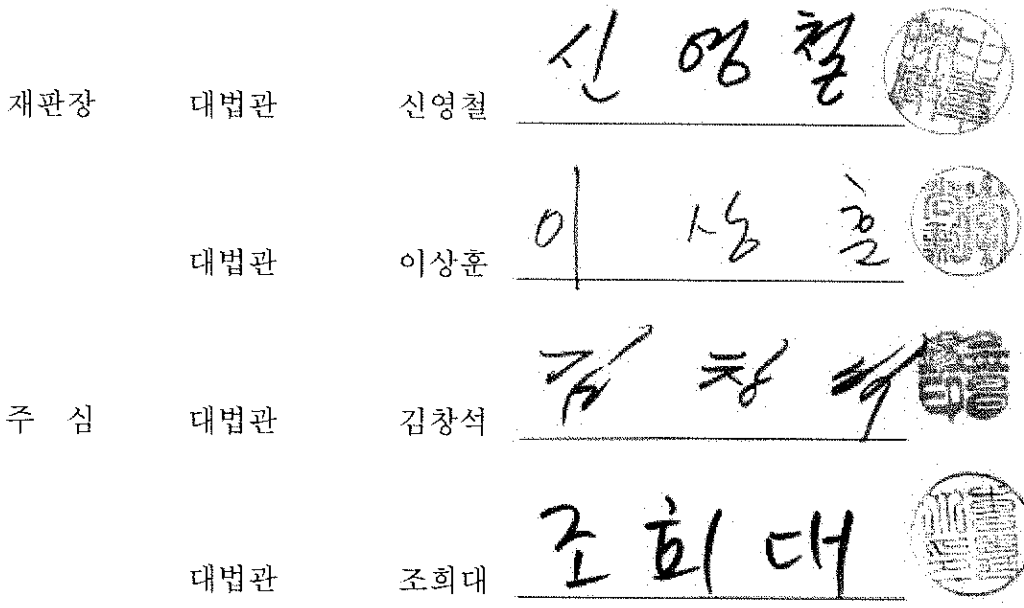 재판장 대법관 신영철 신영철
대법관 이상훈 이상훈
주 심 대법관 김창석 김창석
대법관 조희대 조희대